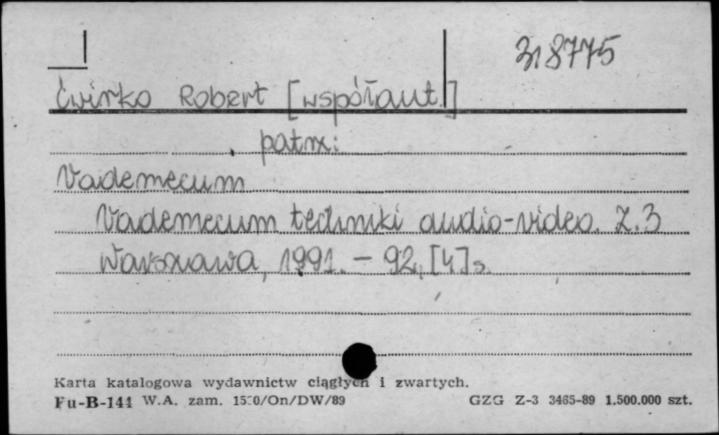 318775
Ćwirko Robert [współaut.]
patrz:
Vademecum
Vademecum techniki audio-video. Z.3
Warszawa, 1991. - 92, [4] s.
Karta katalogowa wydawnictw ciągłych i zwartych.
Pu-B-144 W.A. zam. 1520/On/DW/89 GZG Z-3 3465-89 1.500.000 szt.